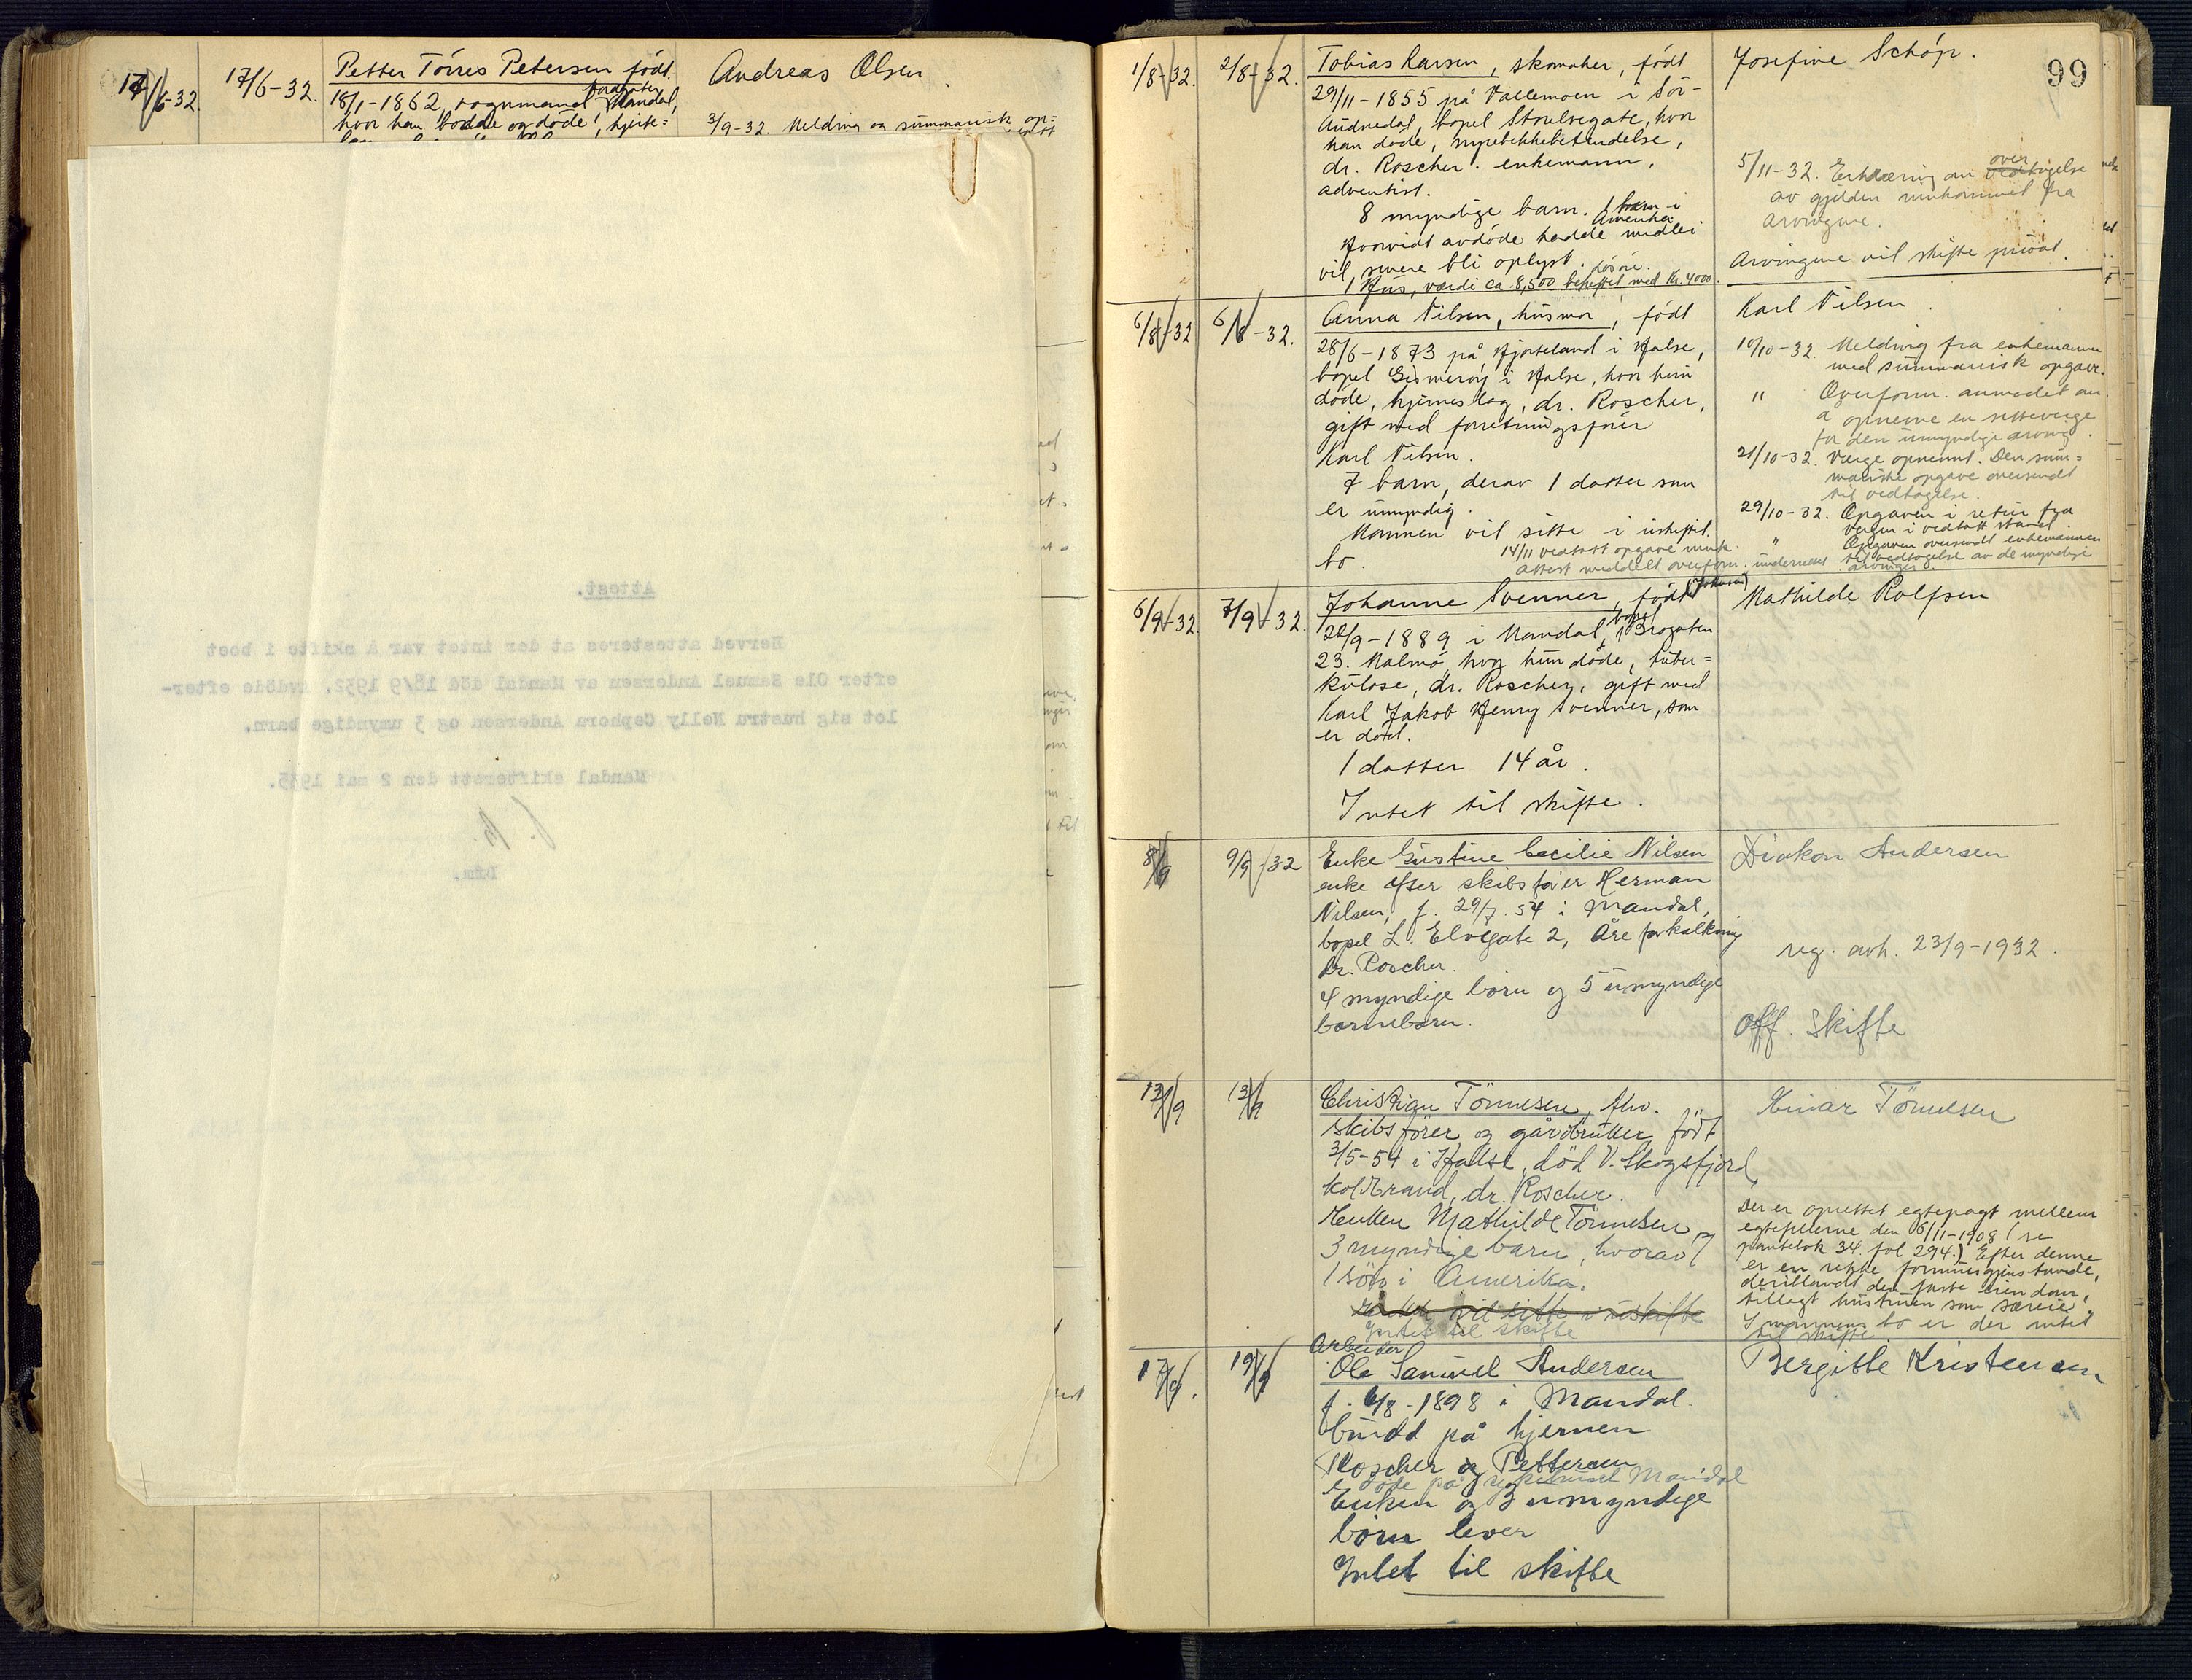 17/6-32. 17/6-32. Petter Törres Petersen född
18/1-1862, rognmand Mandal,
hvor han bodde og döde, hjerte=
Andreas Olsen
3/9-32 Melding og summarisk op=
Attest.
Herved attesteres at der intet var å skifte i boet
efter Ole Samuel Andersen av Mandal död 18/9 1932. Avdöde efter-
lot sig hustru Nelly Cephora Andersen og 3 umyndige barn.
Mandal skifterett den 2 mai 1935.
Dfm.
99
1/8-32. 2/8-32. Tobias Larsen, skomaker, född
29/11-1855 på Vallemoen i Sör-
Audnedal, bopel Storelvegate, hvor
han döde,
dr. Roscher. enkemann,
adventist.
8 myndige barn. 1 barn i
Amerika
Hvorvidt avdöde hadde midler
vil senere bli oplyst. lösöre.
1 Hus, værdi ca. 8,500 beheftet med Kr. 4000.
Josefine Schöp.
5/11-32. Erklæring om over
tagelse
av gjelden innkommet fra
arvingene.
Arvingene vil skifte privat.
6/8-32 6/8-32. Anna Nilsen, husmor, född
28/6-1873 på Hjorteland i Halse,
bopel Gismeröy i Halse, hvor hun
döde, hjerneslag, dr. Roscher,
gift med forretningsförer
Karl Nilsen.
7 barn, derav 1 datter som
er umyndig.
Mannen vil sitte i uskiftet
bo.
14/11 vedtatt opgave innk.
attest meddelt overform.
Karl Nilsen
10/10-32. Melding fra enkemannen
med summarisk opgave.
" Overform. anmodet om
å opnevne en setteverge
for den umyndige arving.
21/10-32. Verge opnevnt. Den sum=
mariske opgave oversendt
til vedtagelse.
29/10-32. Opgaven i retur fra
vergen i vedtatt stand.
" Opgaven oversendt enkemannen
til vedtagelse av de myndige
arvinger.
6/9-32 7/9-32 Johanne Svenner, född
22/9-1889 i Mandal, bopel Brogaten
23. Malmö, hvor hun döde, tuber=
kulose, dr. Roscher, gift med
Karl Jakob Henry Svenner, som
er död.
1 datter 14 år.
Intet til skifte.
Mathilde Rolfsen
8/9 9/9-32 Enke Gustine Cecilie Nilsen
enke efter skibsförer Herman
Nilsen, f. 29/7. 54 i Mandal,
bopel L. Elvegate 2, Åreforkalkning
dr. Roscher.
4 myndige börn og 5 umyndige
barnebarn.
Diakon Andersen
reg. avh. 23/9-1932.
Off. Skifte
12/9 13/9 Christian Tönnesen, fhv.
skibsförer og gårdbruker, född
3/5-54 i Halse, död V. Skogsfjord,
Koldbrand, dr. Roscher.
Enken Mathilde Tönnesen
3 myndige barn, hvorav
1 sön i Amerika.
Enken vil sitte i uskifte
Intet til skifte
Einar Tönnesen
Der er oprettet egtepagt mellem
egtefellerne den 6/11-1908 (se
pantebok 34. fol 294.) Efter denne
er en rekke formuesgjenstande,
deriblandt den faste eiendom,
tillagt hustruen som særeie.
I mannens bo er der intet
til skifte
17/9. 19/9 Arbeider
Ole Samuel Andersen
f. 6/8-1898 i Mandal.
buldd på hjernen
Roscher og Pettersen
döde på sykehuset Mandal
Enken og 3 umyndige
börn lever
Intet til skifte
Bergitte Kristensen.